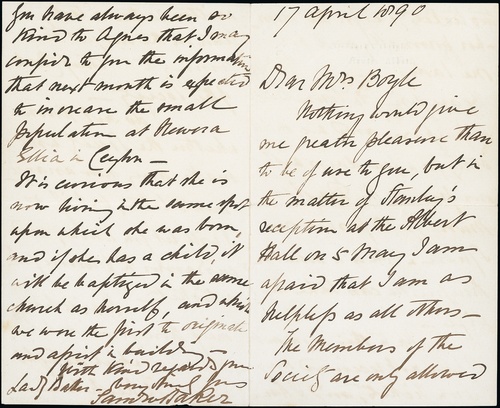 17 April 1890
Dear Mrs Boyle
Nothing would give
me greater pleasure than
to be of use to you, but in
the matter of Stanley's
reception at the Albert
Hall on 5 May I am
afraid that I am as
helpless as all others—
The Members of the
Society are only allowed
you have always been so
kind to Agnes that I may
confide to you the information
that next month is expected
to increase the small
population at Newera
Ellia in Ceylon—
It is curious that she is
now living in the same spot
upon which she was born,
and if she has a child, it
will be baptized in the same
church as herself, and which
we were the first to originate
and assist in building—
With kind regards from
Lady Baker— very truly yours
Saml W Baker